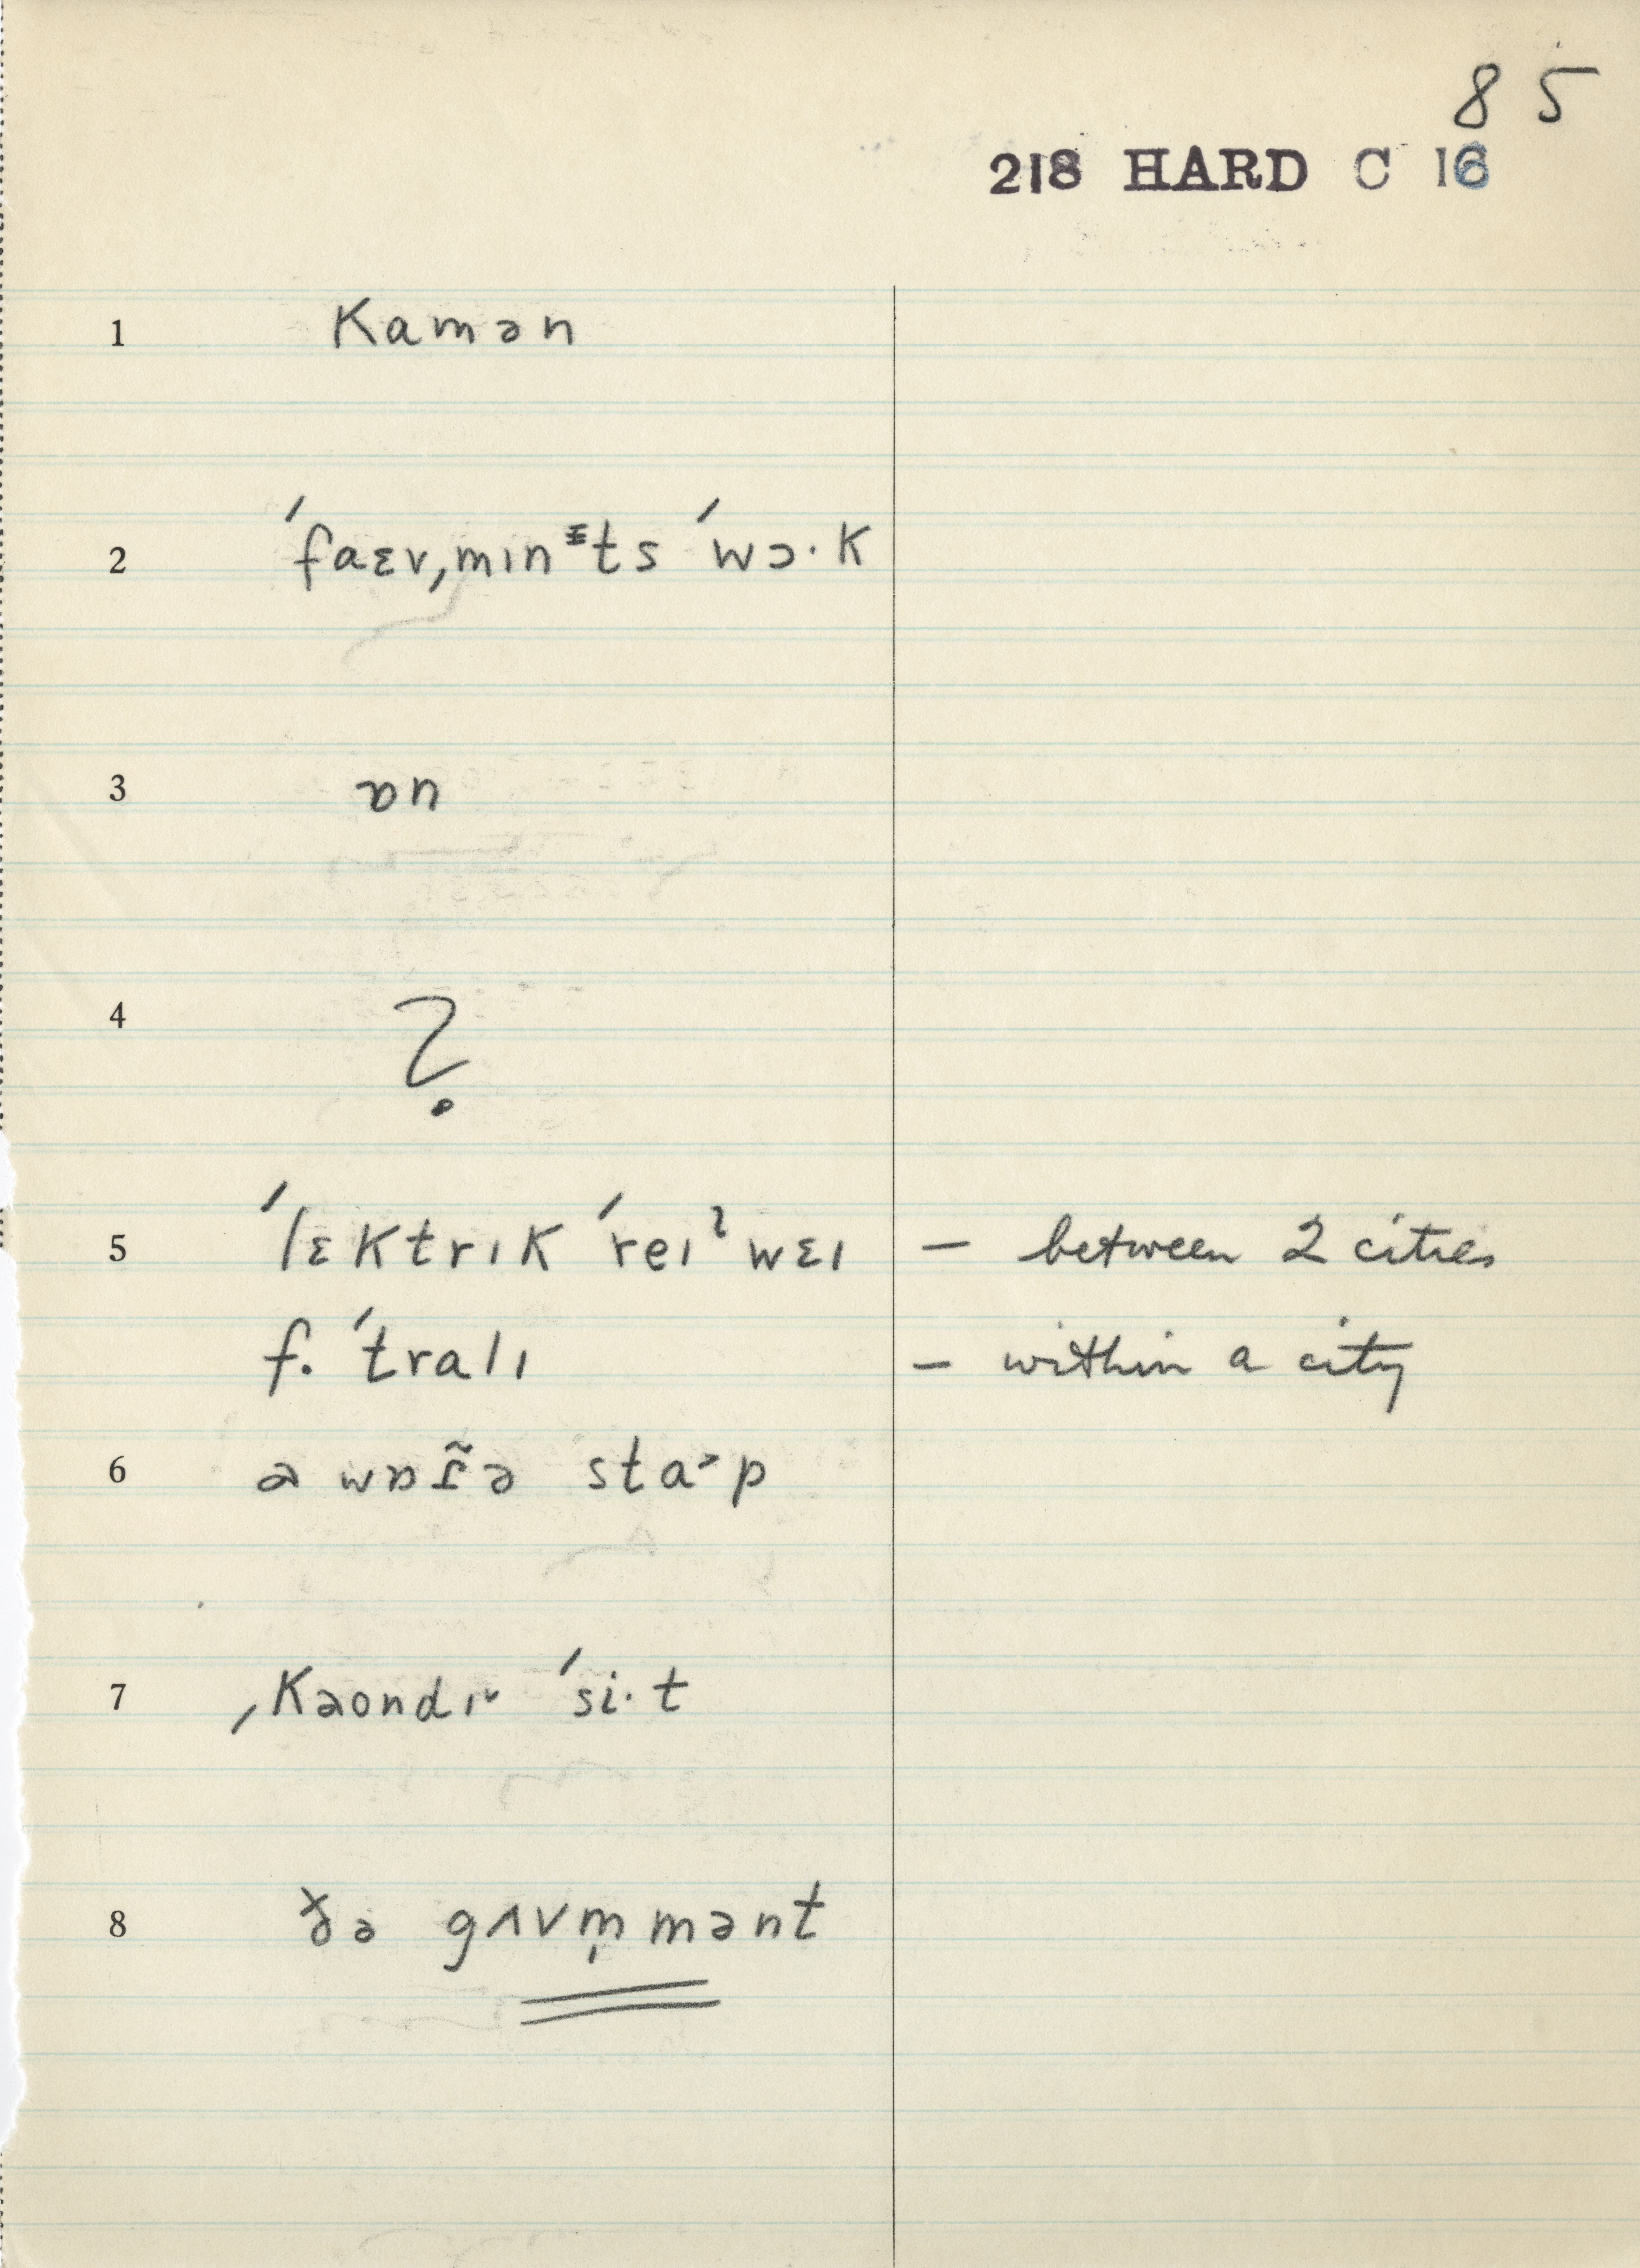 8 5
218 HARD C 16
1 kamən
2 ˈfaɛvˌmɪnᵻts ˈwɔ·k
3 ɒn
4 ?
5 ˈlɛktrɪk ˈreɪˀwɛɪ – between 2 cities
f. ˈtralɪ – within a city
6 ə wɒɾ̃ə sta˃p
7 ˌkəondɪ˅ ˈsi·t
8 ðə gʌvm̩mənt